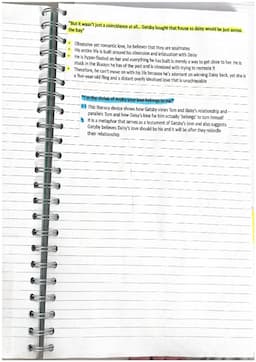 "But it wasn't just a coincidence at all... Gatsby bought that house so daisy would be just across
the bay"
Obsessive yet romantic love, he believes that they are soulmates
His entire life is built around his obsession and infatuation with Daisy
He is hyper-fixated on her and everything he has built is merely a way to get closer to her. He is
stuck in the illusion he has of the past and is obsessed with trying to recreate it
Therefore, he can't move on with his life because he's adamant on winning Daisy back, yet she is
a five-year-old fling and a distant poorly idealised love that is unachievable
"I'm the sheikh of Araby your love belongs to me"
This literary device shows how Gatsby views Tom and daisy's relationship and
parallels Tom and how Daisy's love for him actually 'belongs' to Tom himself
It is a metaphor that serves as a testament of Gatsby's love and also suggests
Gatsby believes Daisy's love should be his and it will be after they rekindle
their relationship